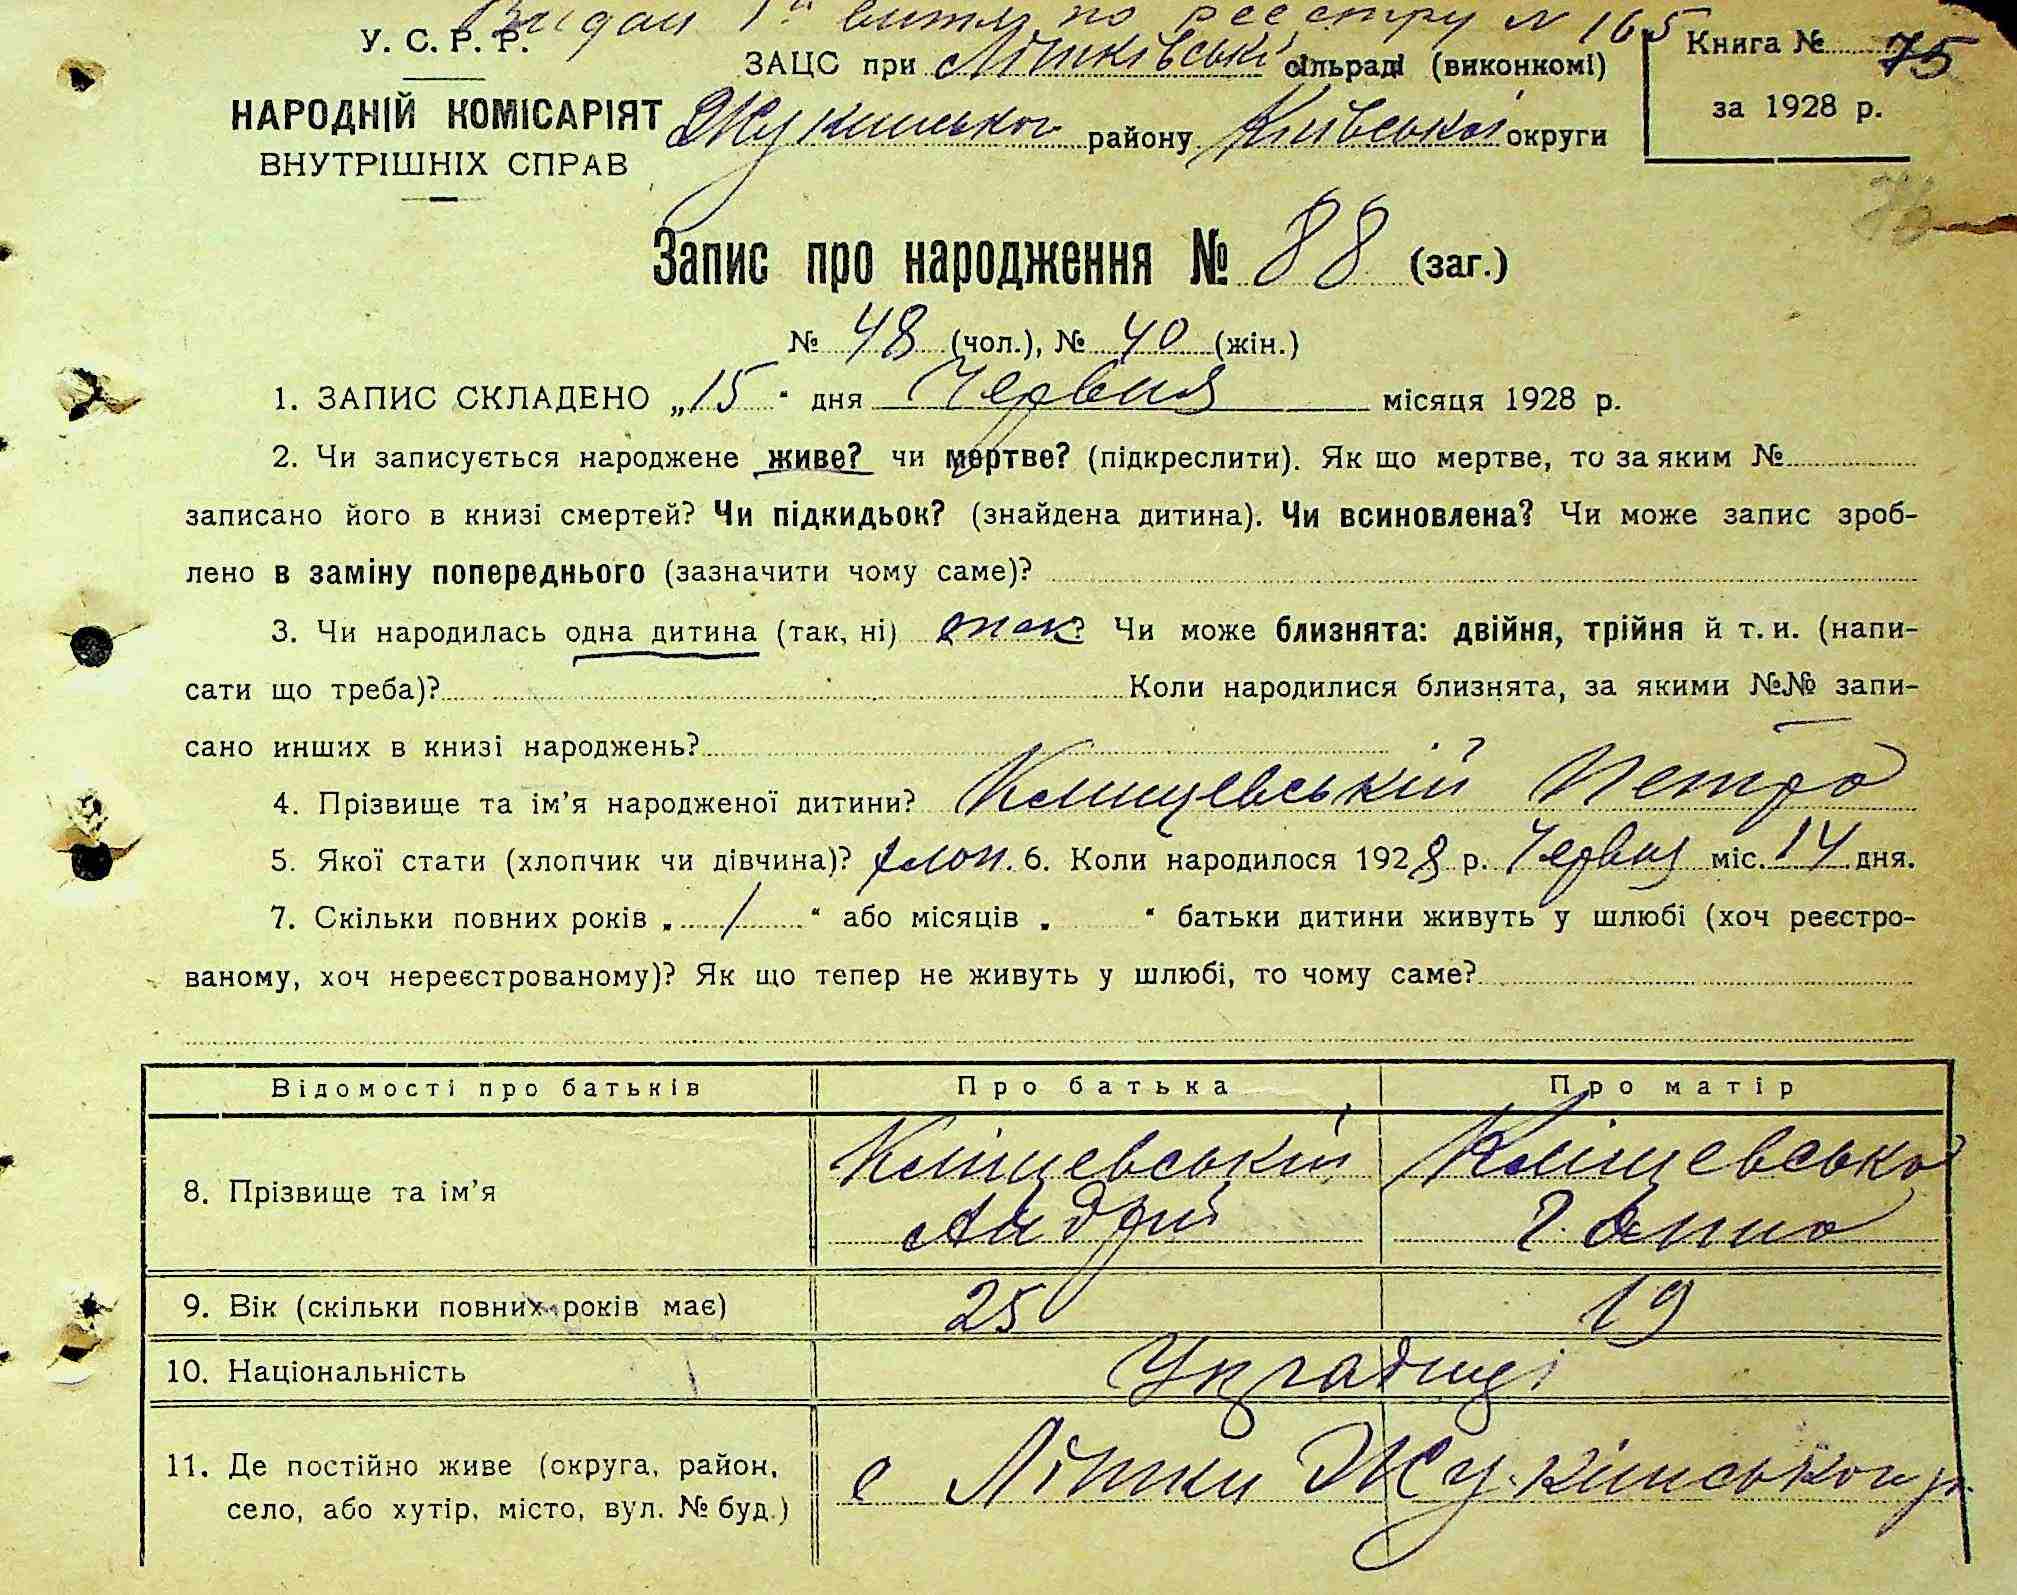 Видан 1й витяг по реєстру N 165
У. С. Р. Р.
НАРОДНІЙ КОМІСАРІЯТ
ВНУТРІШНІХ СПРАВ
ЗАЦС при Літківські сільраді (виконкомі)
Жукинського району Київської округи
Книга № 75
за 1928 р.
76
Запис про народження № 88 (заг.)
№ 48 (чол.), № 40 (жін.)
1. ЗАПИС СКЛАДЕНО „15" дня Червня місяця 1928 р.
2. Чи записується народжене живе? чи мертве? (підкреслити). Як що мертве, то за яким №
записано його в книзі смертей? Чи підкидьок? (знайдена дитина). Чи всиновлена? Чи може запис зроб-
лено в заміну попереднього (зазначити чому саме)?
3. Чи народилась одна дитина (так, ні) так? Чи може близнята: двійня, трійня й т. и. (напи-
сати що треба)? Коли народилися близнята, за якими №№ запи-
сано инших в книзі народжень?
4. Прізвище та ім'я народженої дитини? Клищевській Петро
5. Якої стати (хлопчик чи дівчина)? хлоп. 6. Коли народилося 1928 р. Червня міс. 14 дня.
7. Скільки повних років „ 1 " або місяців „ " батьки дитини живуть у шлюбі (хоч реєстро-
ваному, хоч нереєстрованому)? Як що тепер не живуть у шлюбі, то чому саме?
Відомості про батьків Про батька Про матір
8. Прізвище та ім'я Кліщевській Андрій Кліщевська Ганна
9. Вік (скільки повних років має) 25 19
10. Національність Українці
11. Де постійно живе (округа, район, с Літки Жукінського р.
село, або хутір, місто, вул. № буд.)